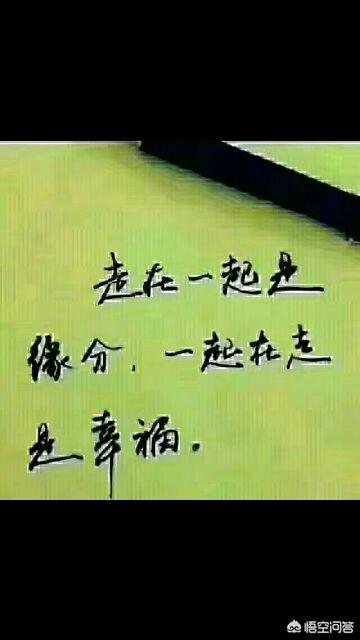 走在一起是
缘分.一起在走
是幸福。
悟空问答